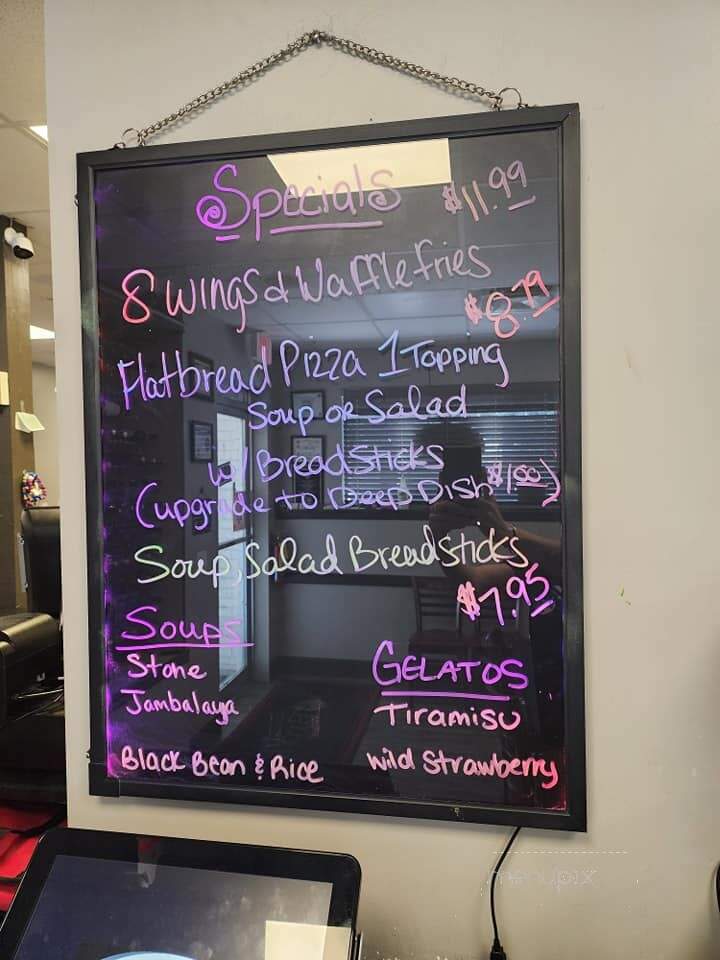 Specials $11.99
8 Wings & Waffle fries
$8.79
Flatbread Pizza 1 Topping
Soup or Salad
w/ Breadsticks
(upgrade to Deep Dish $1.00)
Soup, Salad Breadsticks
$7.95
Soups
Stone
Jambalaya
Black Bean & Rice
GELATOS
TIRAMISU
Wild Strawberry
menupix